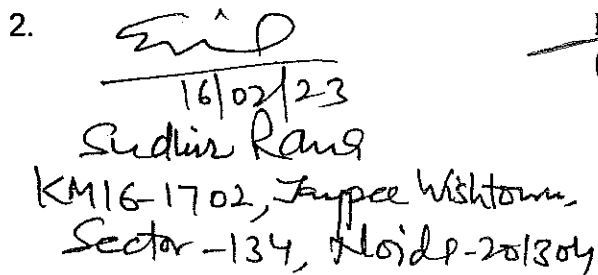 2.
16/02/23
Sudhir Rana
KM16-1702, Jaypee Wishtown,
Sector-134, Noida-201304